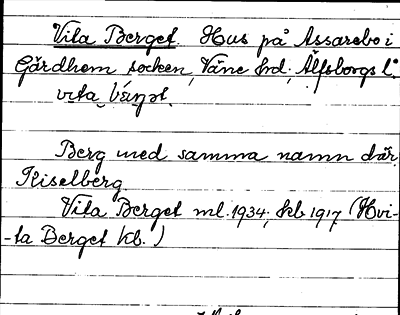 Vita Berget. Hus på Assarebo i
Gärdhem socken, Väne hd; Älfsborgs l.
vita bärjət.
Berg med samma namn där.
Kiselberg
Vita Berget ml. 1934; kb 1917 (Hvi-
-ta Berget kb.)